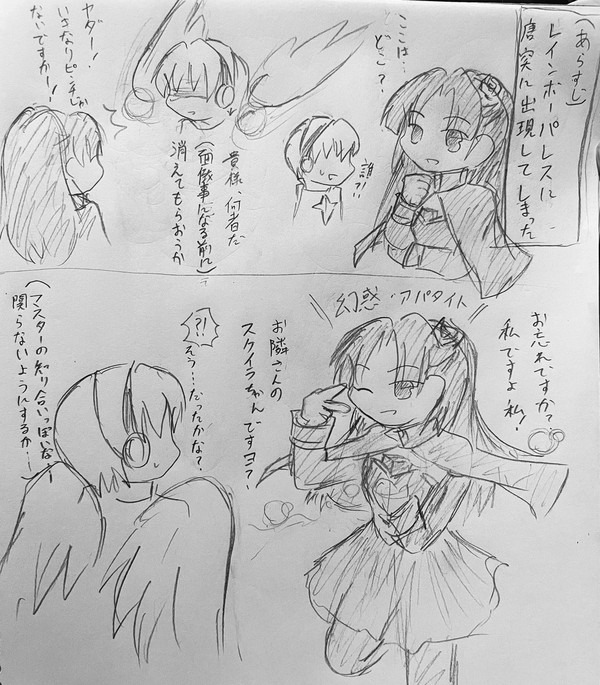 (あらすじ)
レインボーパレスに
唐突に出現してしまった
ここは…
どこ?
誰?!
貴様、何者だ
(面倒事になる前に
消えてもらおうか)
ヤダー!
いきなりピンチじゃ
ないですかー!
お忘れですか?
私ですよ私!
幻惑・アパタイト
お隣さんの
スクイラちゃんですヨ?
?!
そう…だったかな?
(マスターの知り合いっぽいな…
関らないようにするか…)